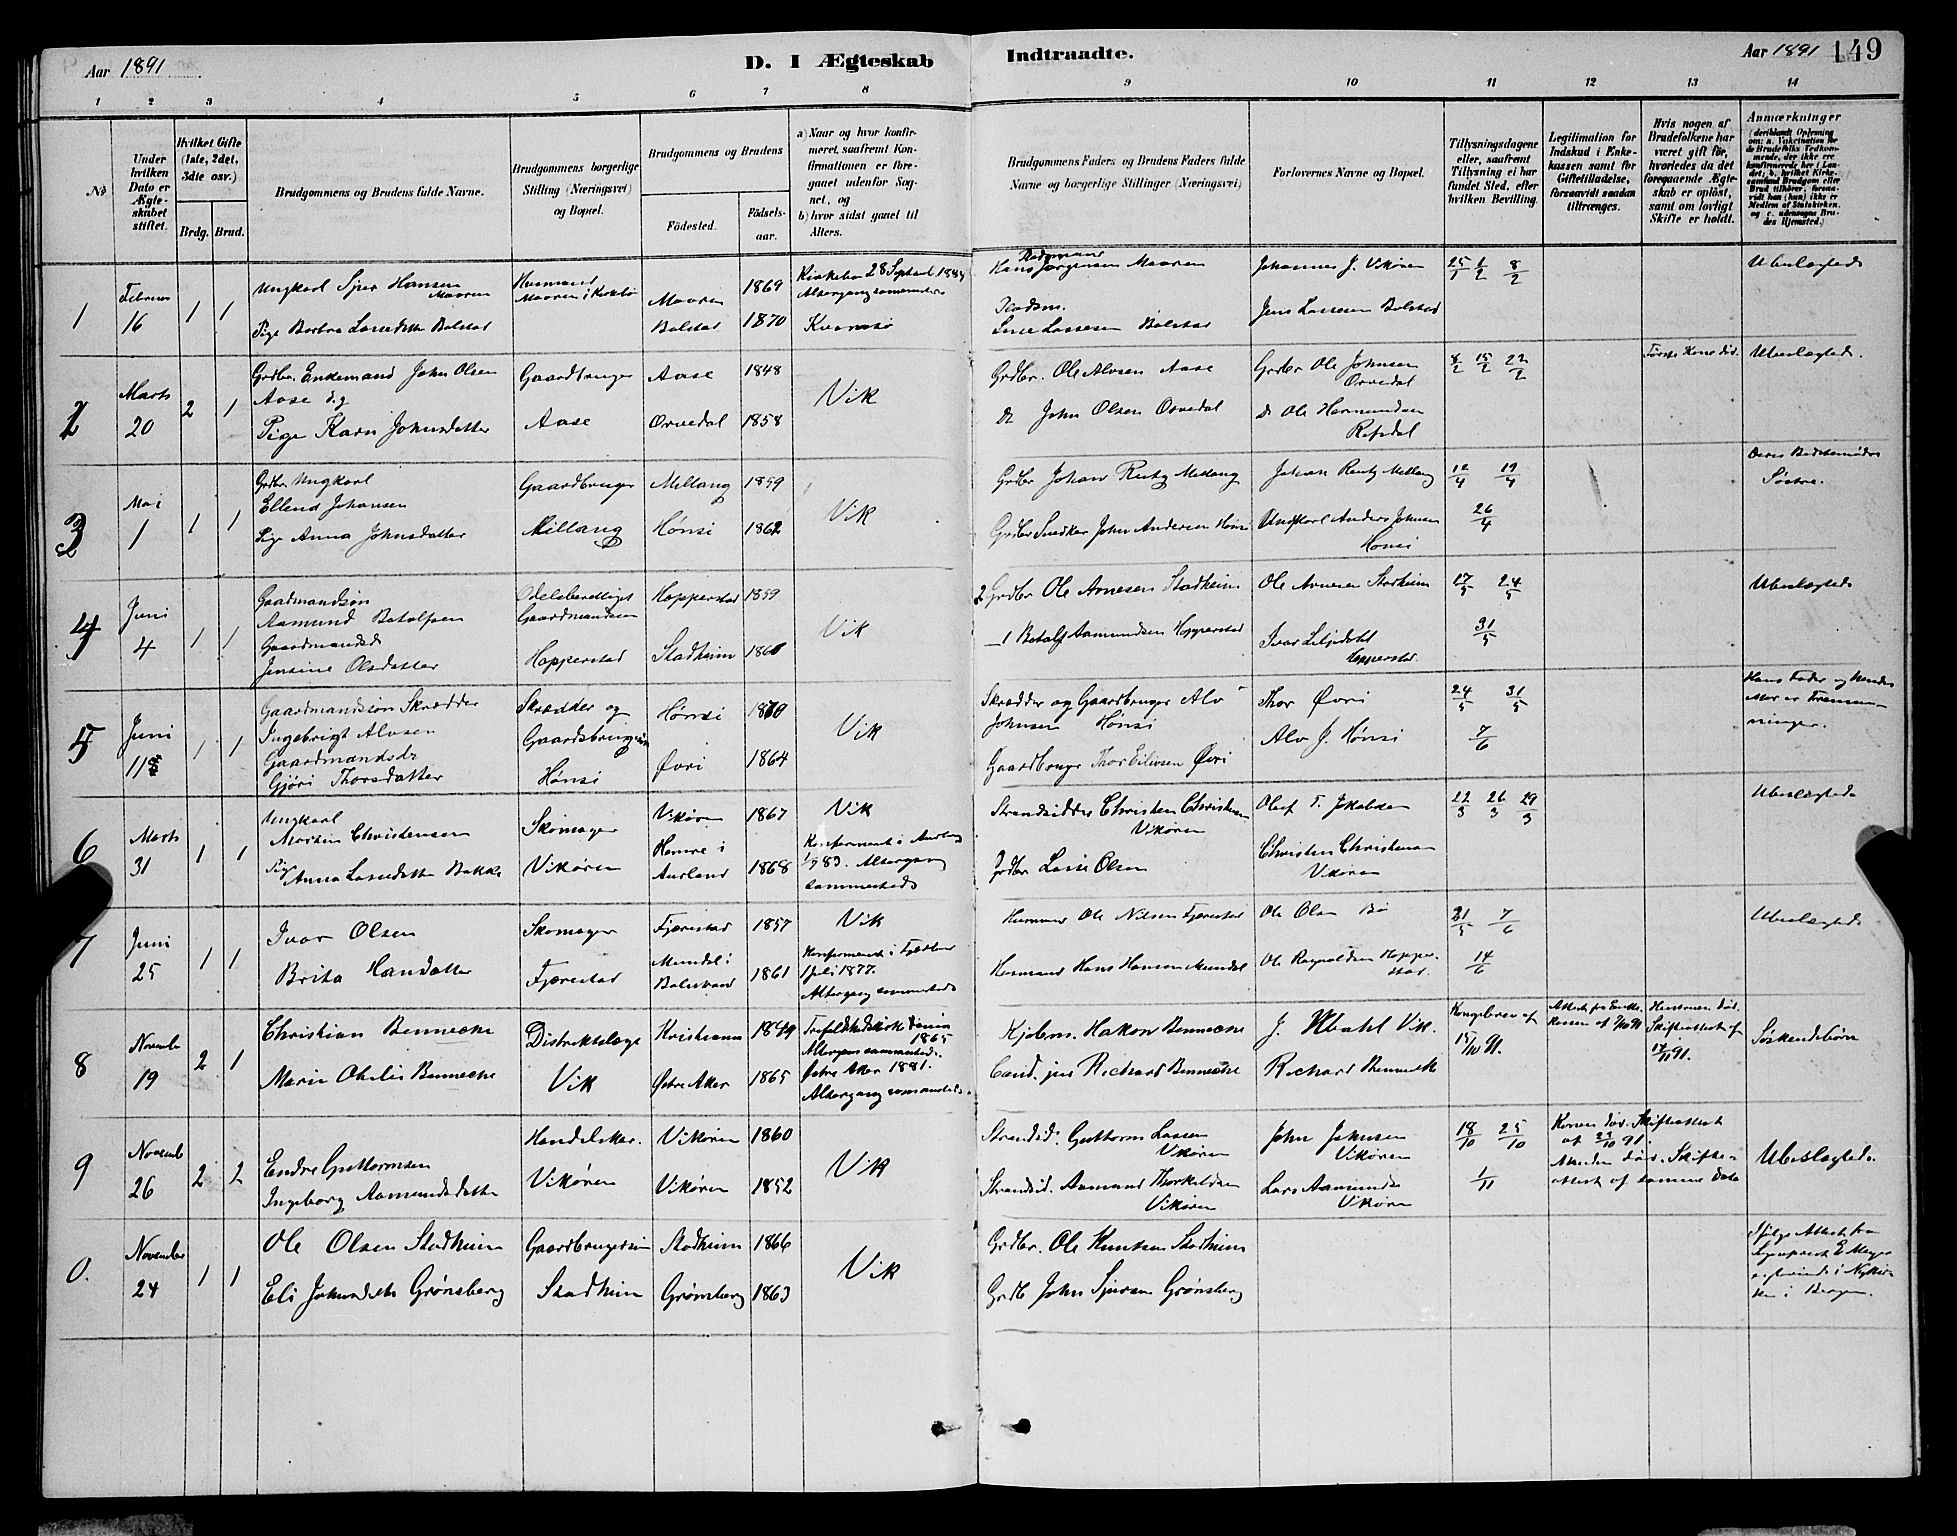 Aar 1891
D. I Ægteskab
Indtraadte.
Aar 1891 149
1 2 3 4 5 6 7 8 9 10 11 12 13 14
No
Under hvilken Dato er Ægteskabet stiftet.
Hvilket Gifte (1ste, 2det, 3die osv.)
Brdg. Brud.
Brudgommens og Brudens fulde Navne.
Brudgommens borgerlige Stilling (Næringsvei) og Bopæl.
Brudgommens og Brudens
Födested.
Födsels-aar.
a) Naar og hvor konfirmeret, saafremt Konfirmationen er foregaaet udenfor Sognet, og
b) hvor sidst gaaet til Alters.
Brudgommens Faders og Brudens Faders fulde Navne og borgerlige Stillinger (Næringsvei)
Forlovernes Navne og Bopæl.
Tillysningsdagene eller, saafremt Tillysning ei har fundet Sted, efter hvilken Bevilling.
Legitimation for Indskud i Enkekassen samt for Giftetilladelse, forsaavidt saadan tiltrænges.
Hvis nogen af Brudefolkene har været gift för, hvorledes da det foregaaende Ægteskab er oplöst, samt om lovligt Skifte er holdt.
Anmærkninger
1 Februar 16 1 1
Ungkarl Sjur Hansen Maaren
Pige Barbra Lassedatter Bolstad
Husmand Maaren i Kirkebø
Maaren 1869
Bolstad 1870
Kirkebø 28 Septemb 1884
Altergang sammesteds
Kvamsø
Hans Jørgensen Maaren
Lasse Lassesen Bolstad
Johannes J. Vikøren
Jens Lassesen Bolstad
25/1 1/2 8/2
Ubeslægtede
2 Marts 20 2 1
Grdbr. Enkemand John Olsen
Aase
Pige Kari Johnsdatter
Gaardbruger
Aase
Aase 1848
Orvedal 1858
Vik
Grdbr. Ole Alvsen Aase
do John Olsen Orvedal
Grdbr Ole Johnsen Orvedal
do Ole Hermundsen Refsdal
8/2 15/2 22/2
Første Kone död.
Ubeslægtede.
3 Mai 1 1 1
Grdbr. Ungkarl
Ellend Johansen
Pige Anna Johnsdatter
Gaardbruger
Millang
Millang 1859
Hønsi 1862
Vik
Grdbr Johan Rutz Millang
Grdbr Snedker John Andersen Hønsi
Johan Rutz Millang
Ungkarl Anders Johnsen Hønsi
12/4 19/4
26/4
Deres Bedstemødre
Søstre.
4 Juni 4 1 1
Gaardmandsøn
Aamund Botolfsen
Gaardmandsd
Jensine Olsdatter
Odelsberettiget
Gaardmandssøn
Hopperstad
Hopperstad 1859
Stadheim 1860
Vik
2 Grdbr Ole Arnesen Stadheim
1 Botolf Aamundsen Hopperstad
Ole Arnesen Stadheim
Ivar Liljedahl Hopperstad.
17/5 24/5
31/5
Ubeslægtede
5 Juni 11 1 1
Gaardmandsøn Skrædder
Ingebrigt Alvsen
Gaardmandsdr
Gjøri Thorsdatter
Skrædder og
Gaardbrugersøn
Hønsi
Hønsi 1870
Øvri 1864
Vik
Skrædder og Gaardbruger Alv
Johnsen Hønsi
Gaardbruger Thor Eilivsen Øvri
Thor Øvri
Alv J. Hønsi
24/5 31/5
7/6
Hans Fader og hendes
Mor er Fremmen-
ninger.
6 Marts 31 1 1
Ungkarl
Morten Christensen
Pige
Anna Lassedatter Bakke
Skomager
Vikøren
Vikøren 1867
Hemre i Aurland 1868
Vik
Konfirmeret i Aurland
1883. Altergang
sammesteds
Strandsidder Christen Christensen Vikøren
Grdbr Lasse Olsen
Oluf T. Jakobsen
Christen Christensen Vikøren
22/3 26/3 29/3
Ubeslægtede
7 Juni 25 1 1
Ivar Olsen
Brita Hansdatter
Skomager
Fjærestad
Fjærestad 1857
Mundal i Balestrand 1861
Vik
Konfirmeret i Fjærland
1 juli 1877.
Altergang sammesteds
Husmand Ole Nilsen Fjærestad
Husmand Hans Hansen Mundal
Ole Olsen Bø
Ole Ragnvaldsen Hopperstad.
31/5 7/6
14/6
Ubeslægtede
8 November 19 2 1
Christian Bennecke
Marie Othilie Bennecke
Distriktslæge
Vik
Kristiania 1849
Østre Aker 1865
Trefoldighedskirke 1865
Altergang sammesteds.
Østre Aker 1881.
Altergang sammesteds.
Kjøbm. Hakon Bennecke
Cand. jur Richard Bennecke
J. Ubahl Vik.
Richard Bennecke
Kongebrev af
15/10 91.
Attest fra Enke-
kassen af 7/10 91
Hustruen död.
Skifteattest af
17/11 91.
Søskendebørn
9 Novemb 26 2 2
Endre Guttormsen
Ingeborg Aamundsdatter
Handelskar.
Vikøren
Vikøren 1860
Vikøren 1852
Vik
Strandsid. Guttorm Lassen Vikøren
Strandsid. Aamund Thorkildsen Vikøren
John Johnsen Vikøren
Lars Aamundsen Vikøren
18/10 25/10
1/11
Konen död. Skifteattest
af 23/10 91.
Manden död. Skifte-
attest af samme Dato
Ubeslægtede.
0. November 24 1 1
Ole Olsen Stadheim
Eli Johnsdatter Grønsberg
Gaardbrugersøn
Stadheim
Stadheim 1866
Grønsberg 1863
Vik
Grdbr. Ole Knutsen Stadheim
Grdb John Sjursen Grønsberg
Ifølge Attest fra
Sognepræst E. Meyer
viet i Nykir-
ken i Bergen.